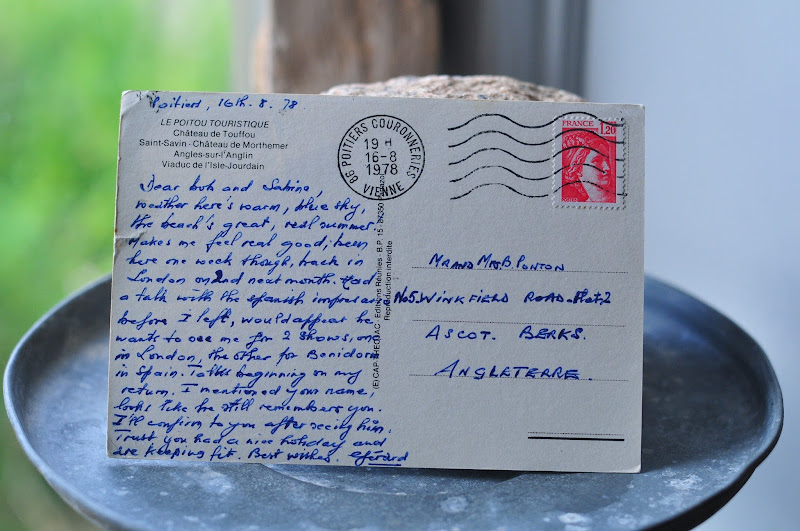 Poitiers, 16th. 8. 78
LE POITOU TOURISTIQUE
Château de Touffou
Saint-Savin - Château de Morthemer
Angles-sur-l'Anglin
Viaduc de l'Isle-Jourdain
Dear Bob and Sabine,
weather here's warm, blue sky,
the beach's great, real summer.
Makes me feel real good, been
here one week though, back in
London on 2nd next month. Had
a talk with the spanish impresario
before I left, would appear he
wants to see me for 2 shows, one
in London, the other for Benidorm
in Spain. Talks beginning on my
return. I mentioned your name,
looks like he still remembers you.
I'll confirm to you after seeing him.
Trust you had a nice holiday and
are keeping fit. Best wishes. Gérard
(E) CAP-THEOJAC - Editions Réunies - B.P. 15 -
Reproduction interdite
86 POITIERS COURONNERIES
19 H
16-8
1978
VIENNE
FRANCE
1,20
MR AND MRS B. PONTON
No5. WINKFIELD ROAD. Flat. 2
ASCOT. BERKS.
ANGLETERRE.